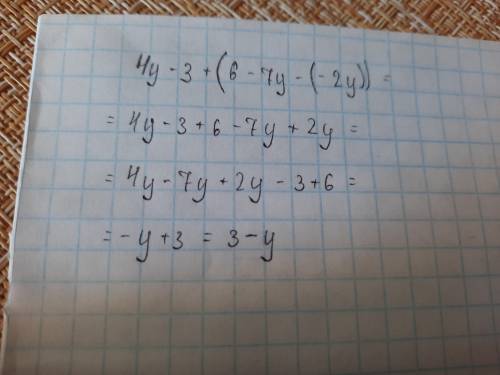 4y - 3 + (6 - 7y - (-2y)) =
= 4y - 3 + 6 - 7y + 2y =
= 4y - 7y + 2y - 3 + 6 =
= -y + 3 = 3 - y